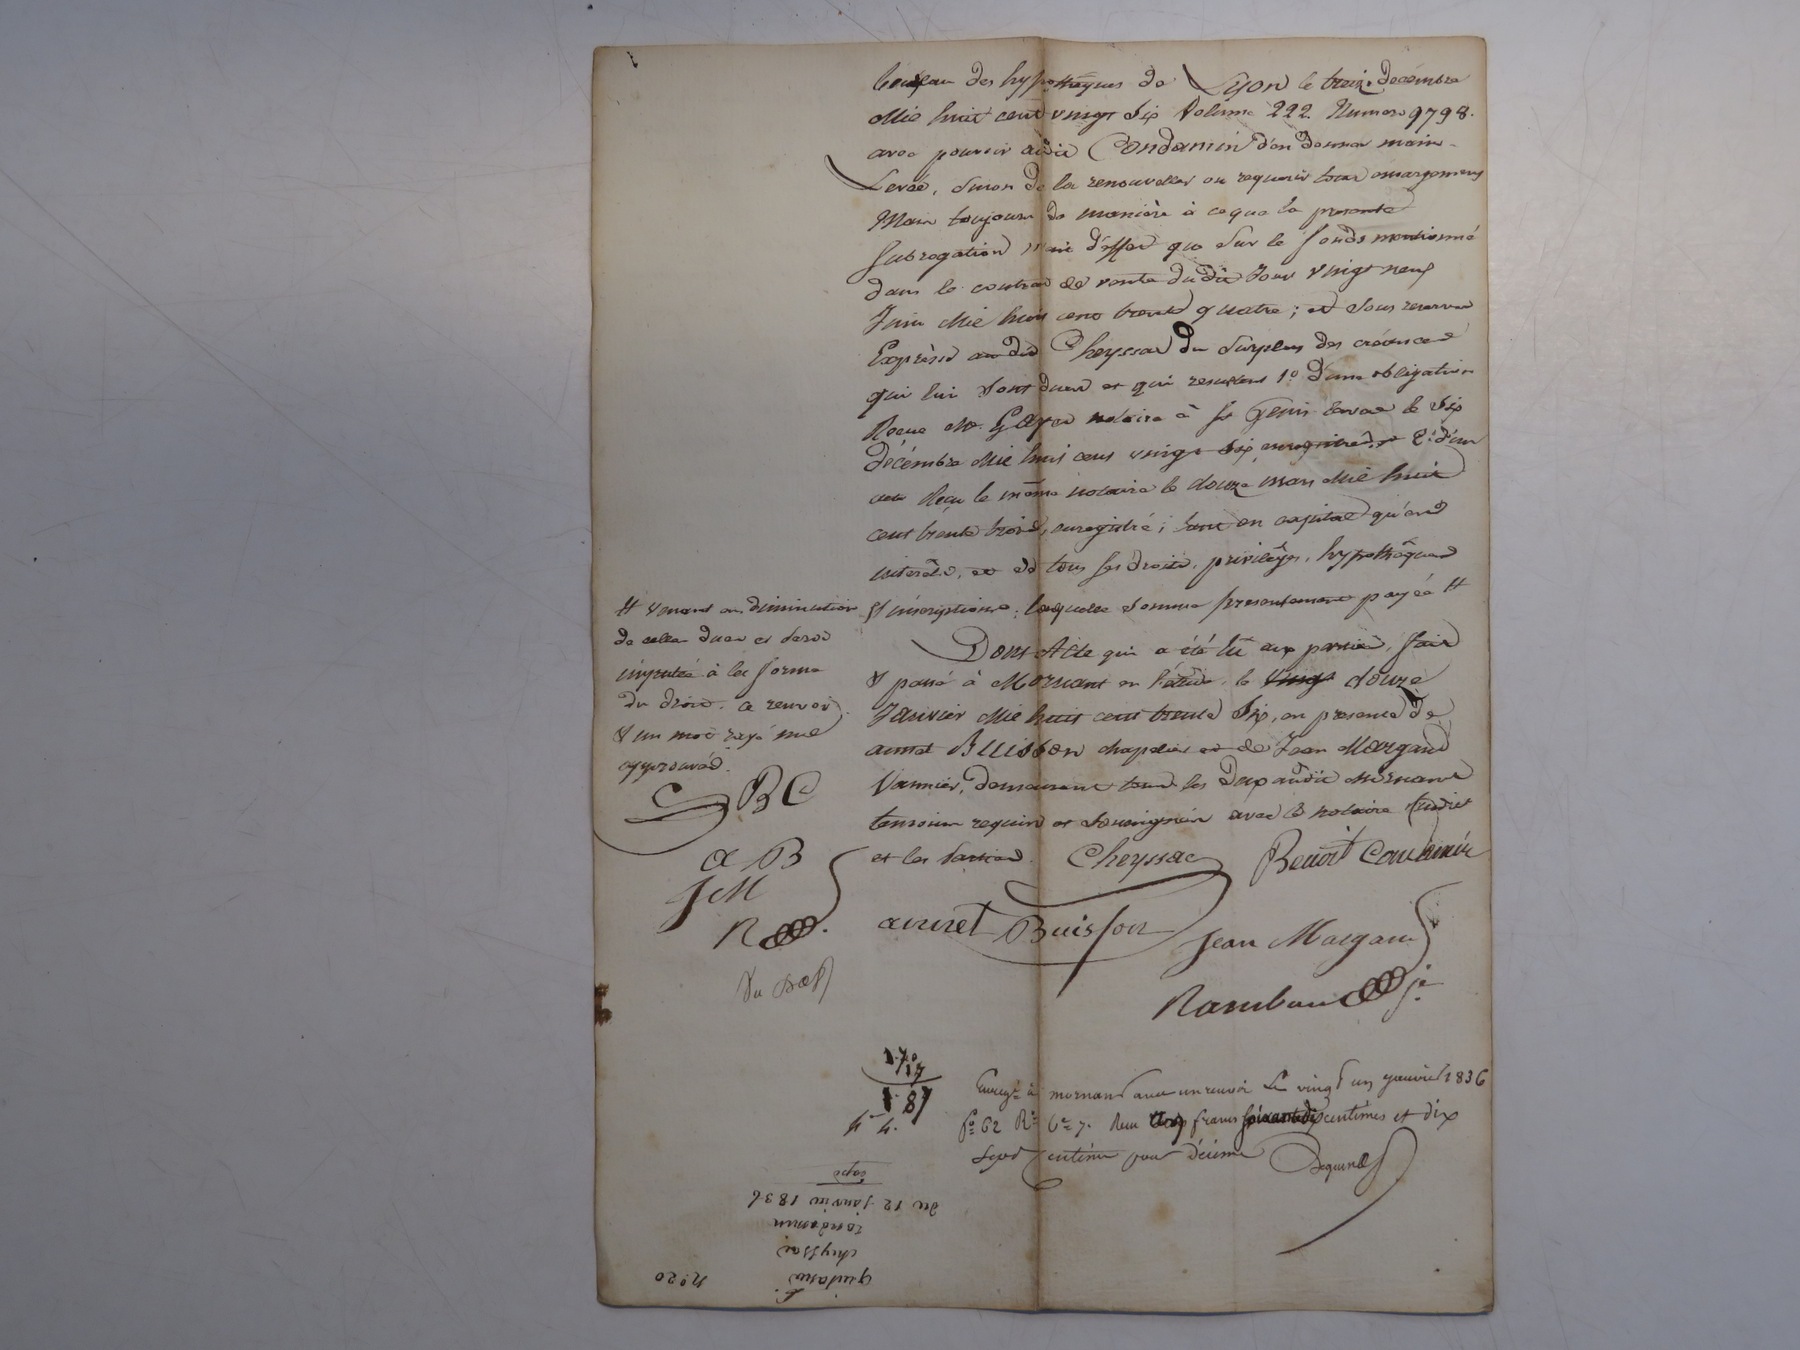 bureau des hypothèques de Lyon le treize décembre
Mil huit cent vingt Six Volume 222. Numero 9798.
avec pouvoir audit Condamin d'en donner main-
Levée, Sinon de la renouveller ou requerir tous émargemens
Mais toujours de manière à ce que la presente
Subrogation n'ait d'effet que Sur le fonds mentionné
dans le contrat de vente dudit Jour Vingt neuf
Juin Mil huit cent trente quatre ; et Sous reserve
Expresse audit Cheyssac du Surplus des créances
qui lui Sont dues et qui resultent 1º D'une obligation
Recue Me notaire à St Genis Laval le Six
décembre Mil huit cent vingt Six, enregistrée, et 2º d'un
acte Reçu le même notaire le douze mars Mil huit
cent trente trois, enregistré ; tant en capital qu'en
intérêts, et de tous ses droits, privilèges, hypothèques
# venant en diminution
& inscriptions ; laquelle Somme presentement payée #
de celles dues et Sera
imputée à la forme
du droit. a renvoi
& un mot rayé nul
approuvés.
Dont Acte qui a été lu aux parties, fait
& passé à Mornant en l'étude, le vingt douze
Janvier Mil huit cent trente Six, en presence de
annet Buisson chapelier et de Jean Margand
Vannier, demeurant tous les Deux audit Mornant
temoins requis et Soussignés avec le notaire Susdit
et les Parties.
BC
a B
JM
R
Cheyssac
Benoît Condamin
annet Buisson
Jean Margand
Rambau je
1.70
17
1 87
Enregé à mornant avec un renvoi Le vingt un janvier 1836
fº 62 Rº Ce 7. Reçu franc soixante dix centimes et dix
Sept centimes pour décime
Nº 20
quittance
cheyssac
condamin
du 12 janvier 1836
Expé